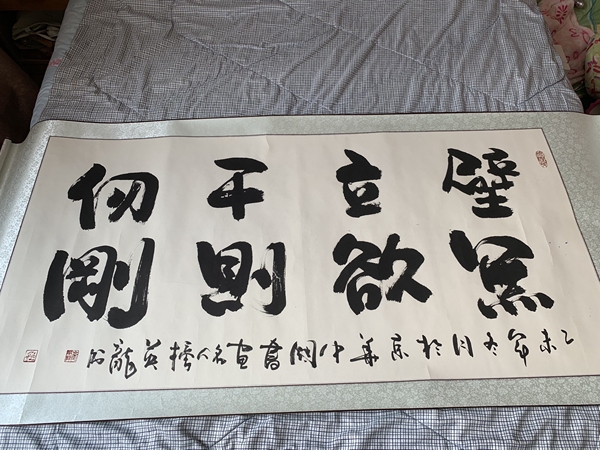 壁立千仞
無欲則剛
乙未年冬月於京華中國書畫名人榜英龍书